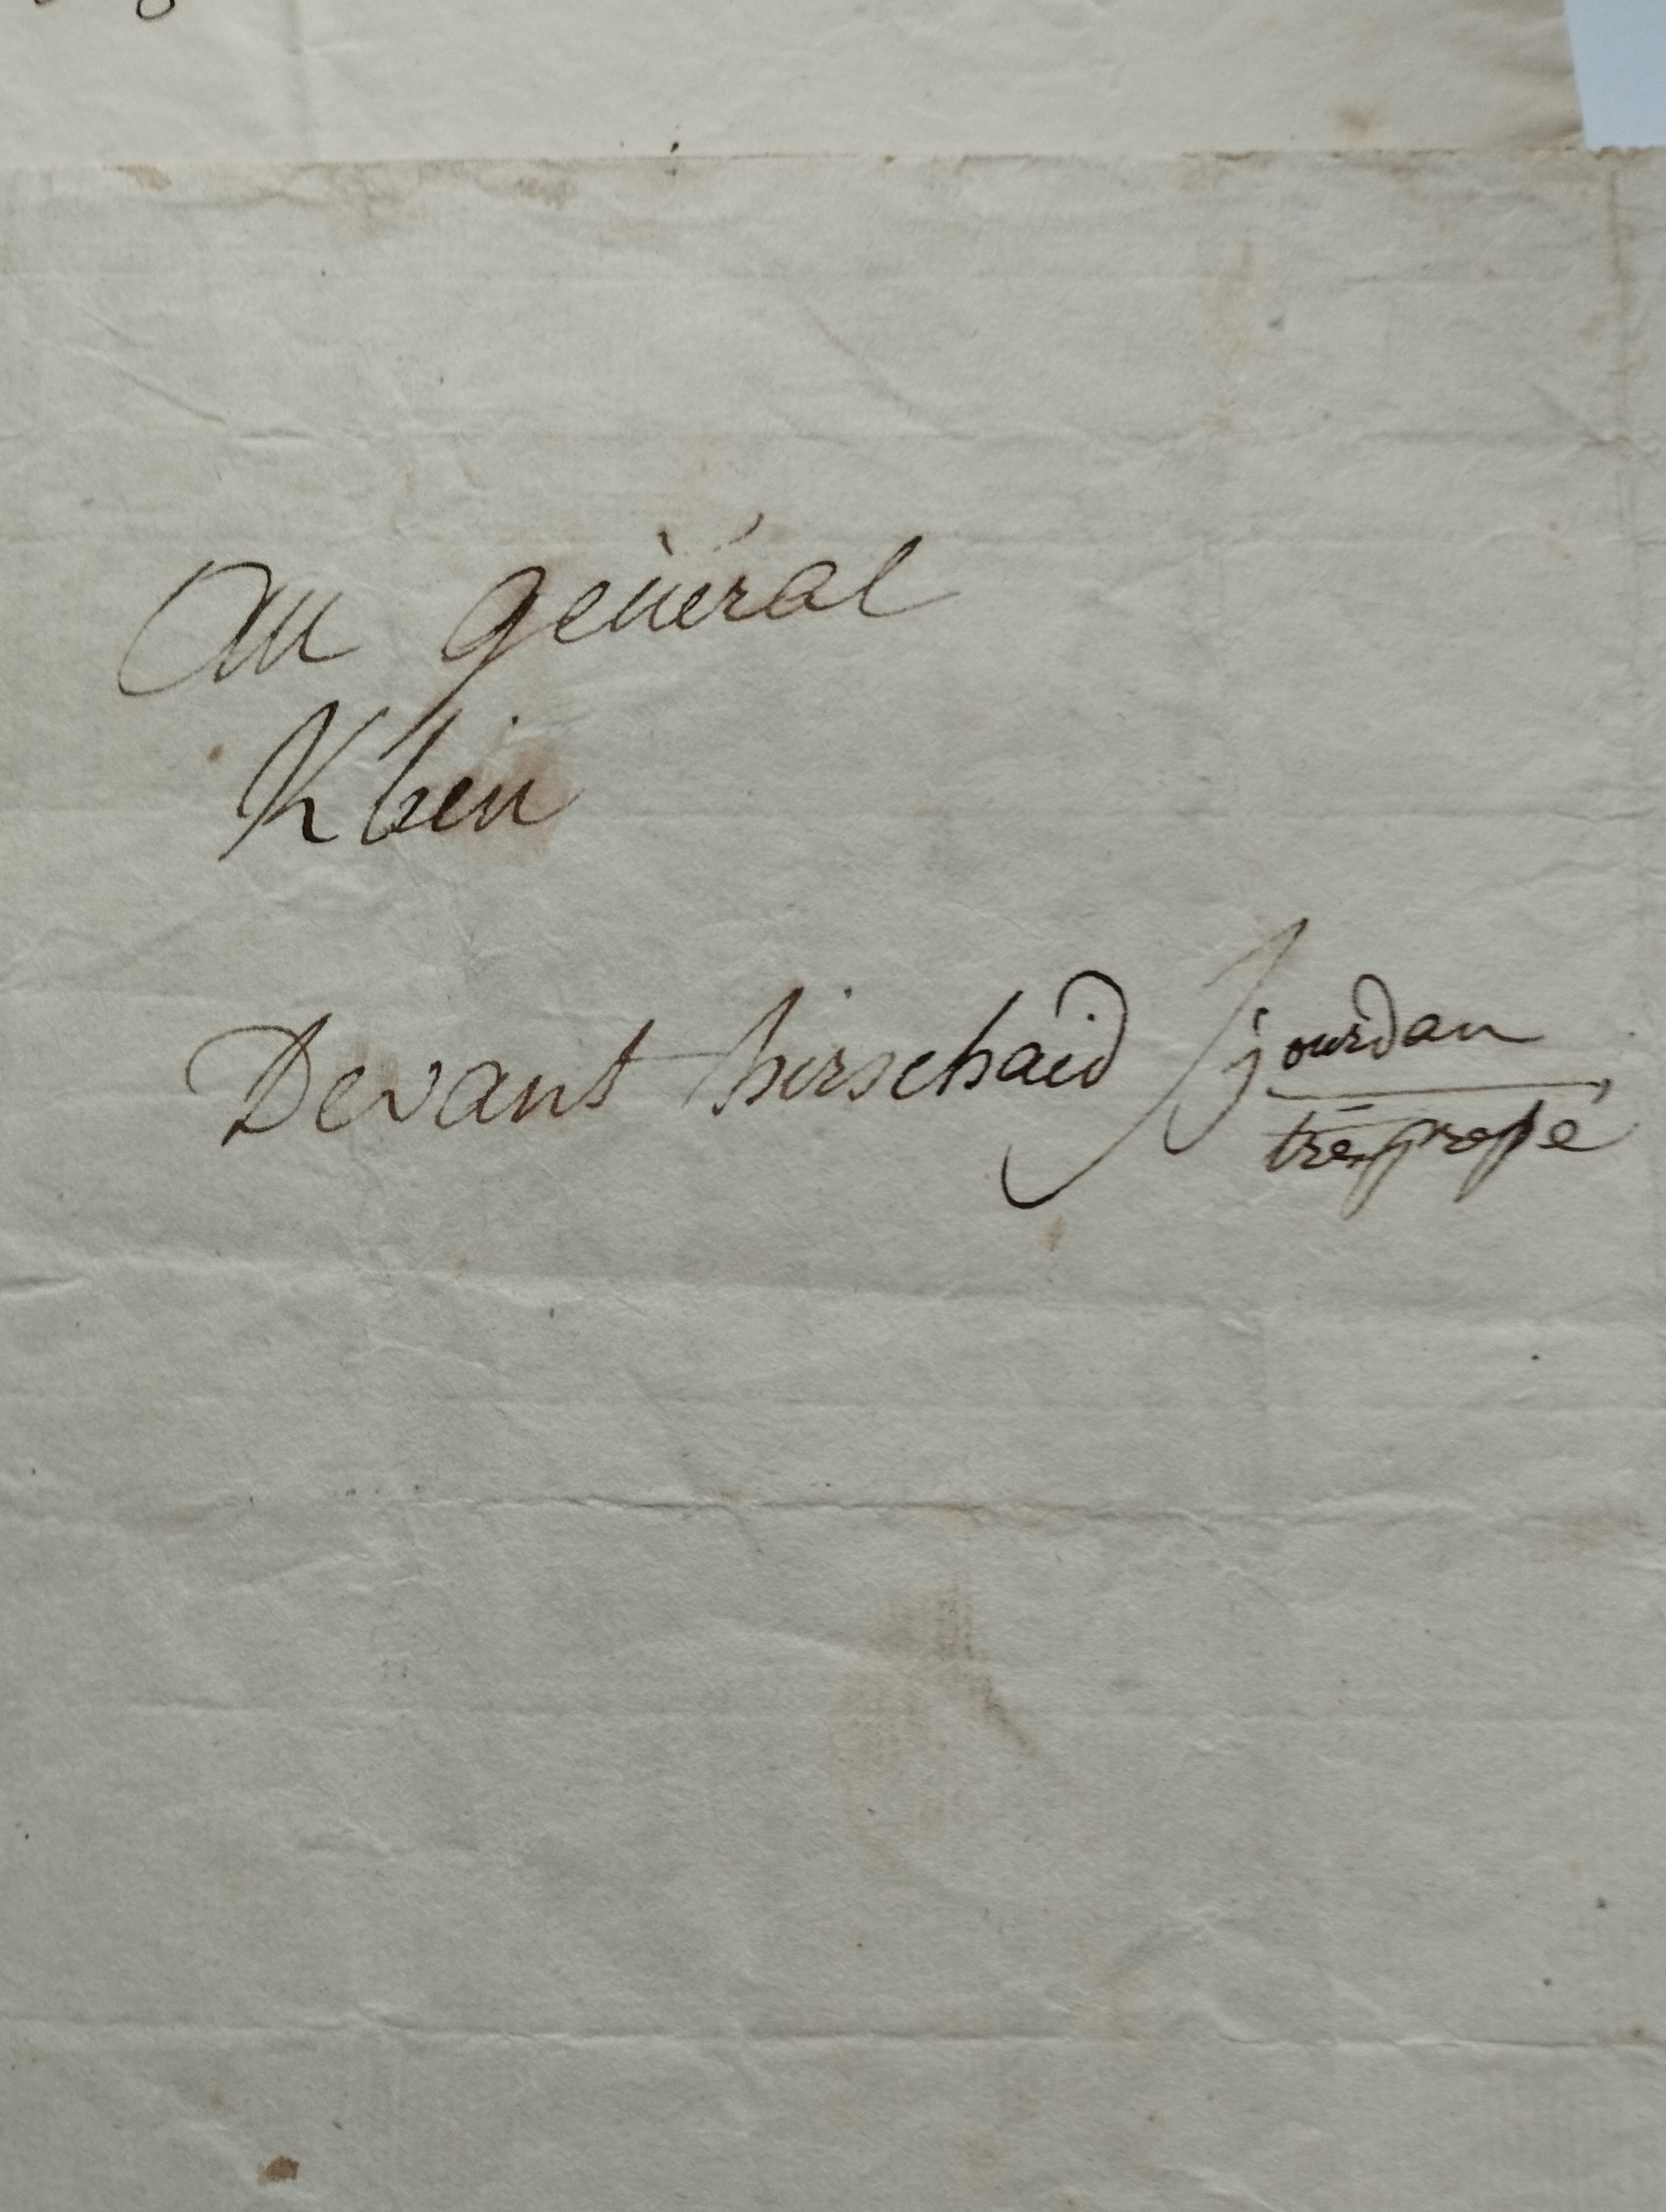 Au général
Klein
Devant hirschaid jourdan
très pressé